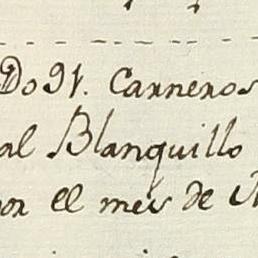 Do 91. Carneros
al Blanquillo
por el mes de